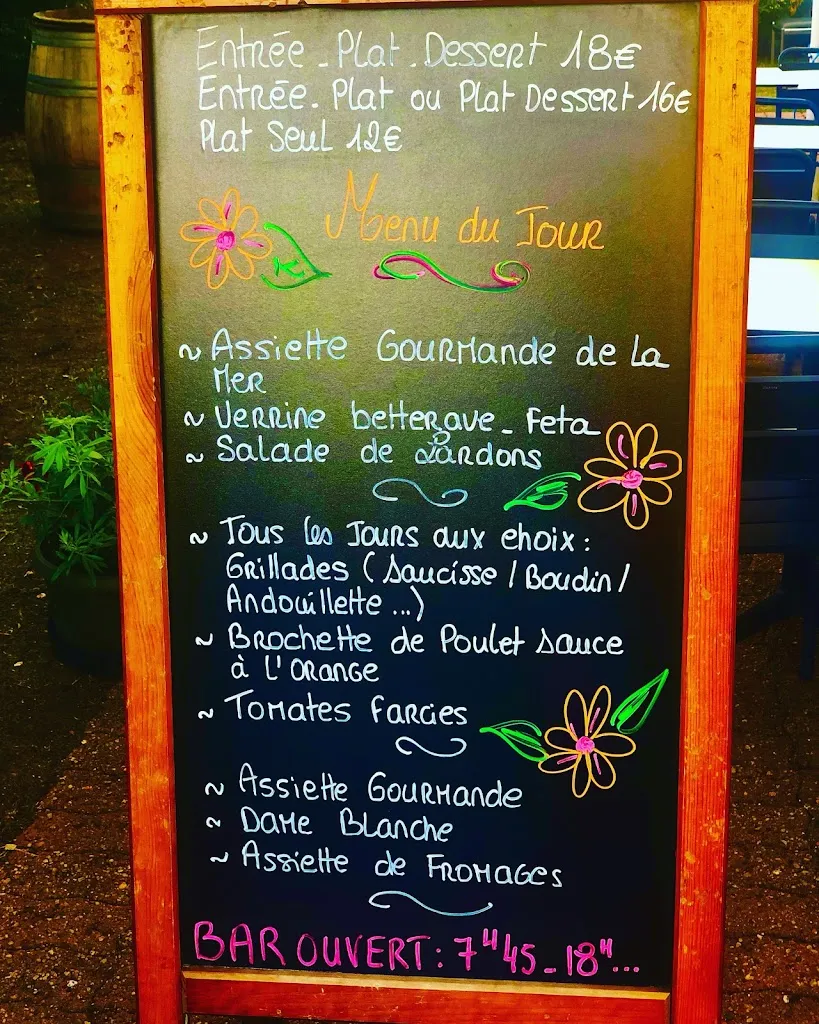 Entrée - Plat - Dessert 18€
Entrée - Plat ou Plat Dessert 16€
Plat Seul 12€
Menu du Jour
~ Assiette Gourmande de la
Mer
~ Verrine betterave - Feta
~ Salade de Lardons
~ Tous les Jours aux choix :
Grillades (Saucisse / Boudin /
Andouillette ...)
~ Brochette de Poulet sauce
à l'orange
~ Tomates farcies
~ Assiette Gourmande
~ Dame Blanche
~ Assiette de Fromages
BAR OUVERT : 7H45 - 18H...